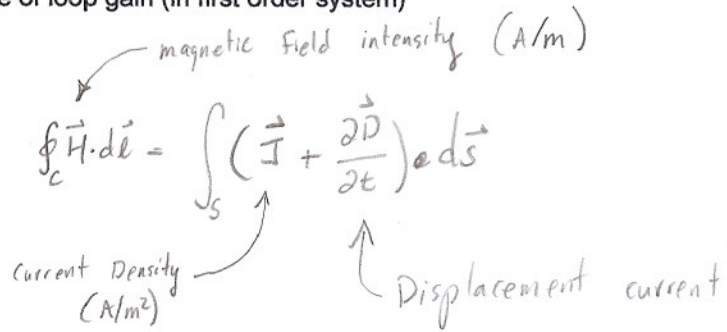 of loop gain (in first order system)
magnetic field intensity (A/m)
∮_C H⃗·dℓ⃗ = ∫_S (J⃗ + ∂D⃗/∂t) • ds⃗
Current Density
(A/m²)
Displacement current